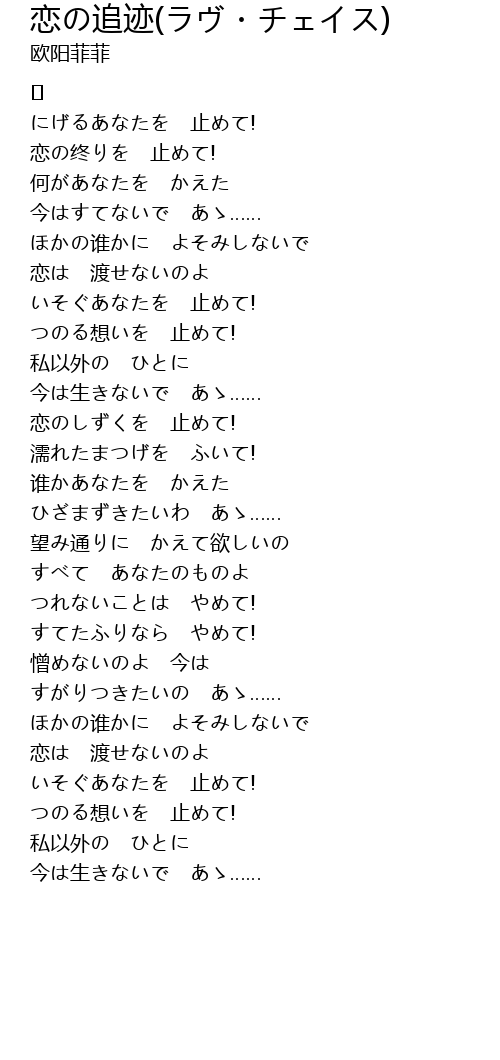 恋の追迹(ラヴ・チェイス)
欧阳菲菲
[]
にげるあなたを　止めて!
恋の终りを　止めて!
何があなたを　かえた
今はすてないで　あゝ……
ほかの谁かに　よそみしないで
恋は　渡せないのよ
いそぐあなたを　止めて!
つのる想いを　止めて!
私以外の　ひとに
今は生きないで　あゝ……
恋のしずくを　止めて!
濡れたまつげを　ふいて!
谁かあなたを　かえた
ひざまずきたいわ　あゝ……
望み通りに　かえて欲しいの
すべて　あなたのものよ
つれないことは　やめて!
すてたふりなら　やめて!
憎めないのよ　今は
すがりつきたいの　あゝ……
ほかの谁かに　よそみしないで
恋は　渡せないのよ
いそぐあなたを　止めて!
つのる想いを　止めて!
私以外の　ひとに
今は生きないで　あゝ……